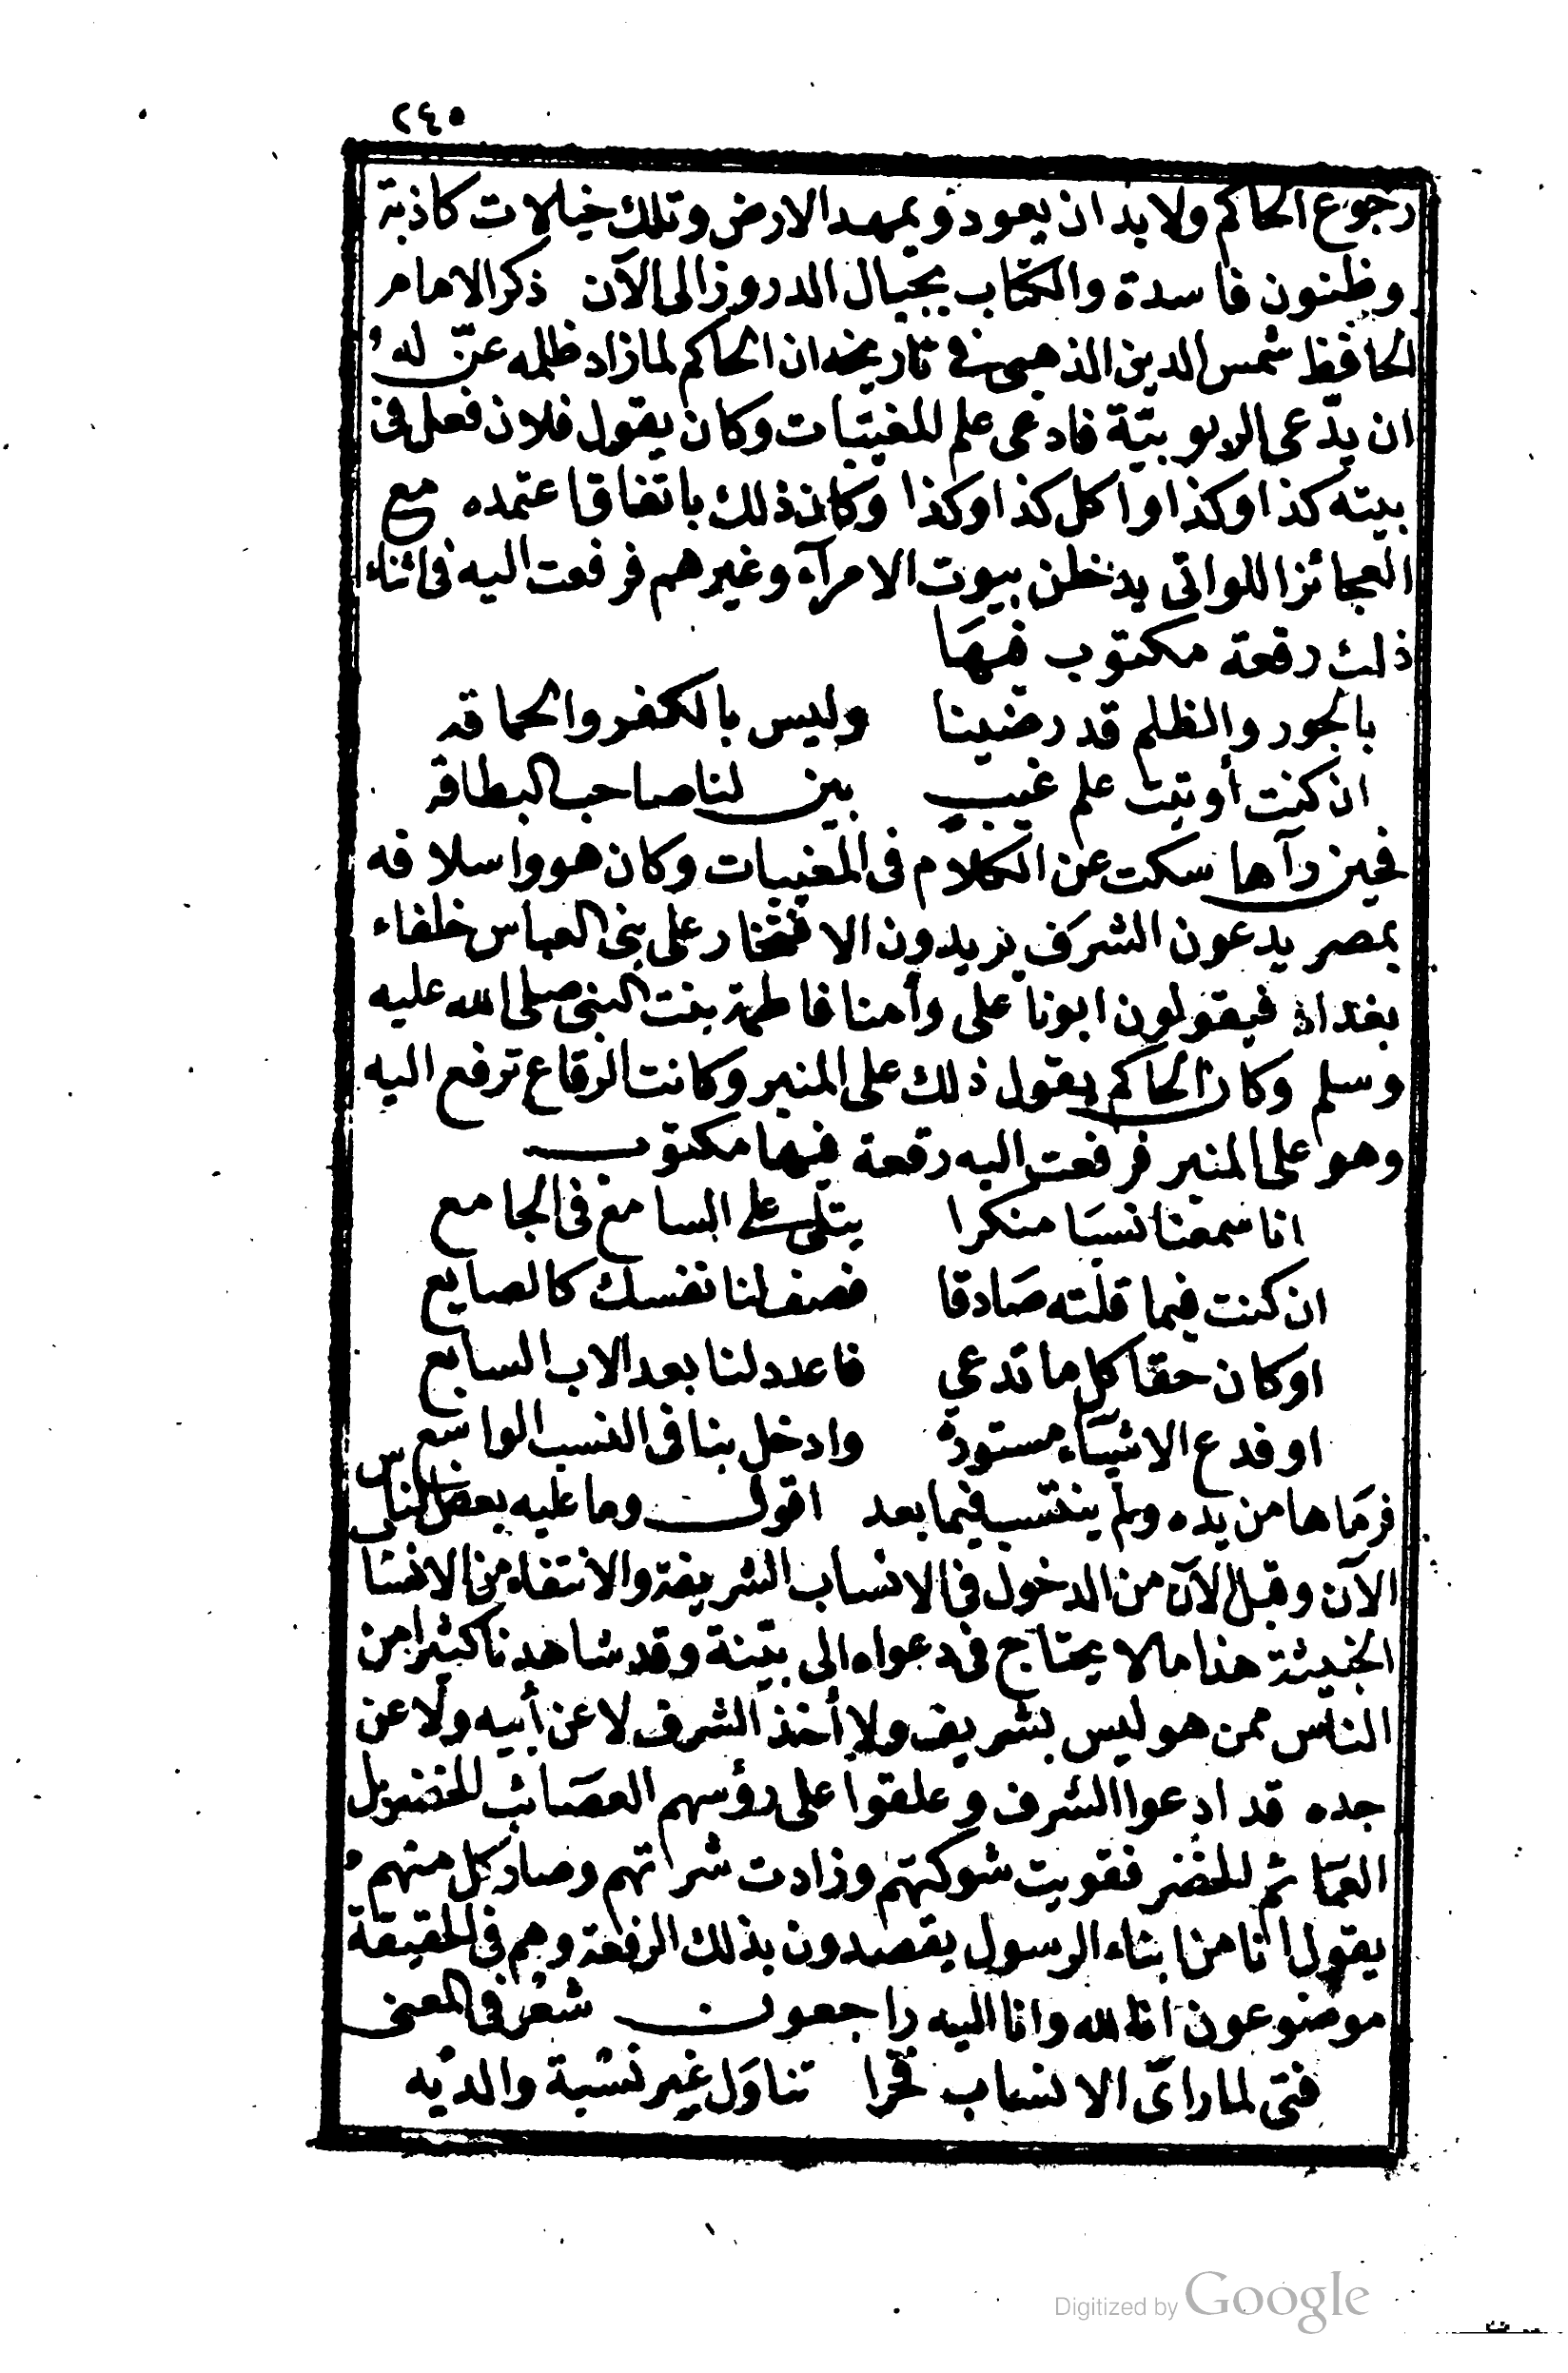 ٢٤٥
رجوع الحاكم ولا بد ان يعود ويمهد الارض وتلك خيالات كاذبة
وظنون فاسدة والكتاب بجبال الدروز الى الآن ذكر الامام
الحافظ شمس الدين الذهبى فى تاريخه ان الحاكم لما زاد ظلمه عنّ له
ان يدّعى الربوبيّة فادعى علم المغيّبات وكان يقول فلان فعل فى
بيته كذا وكذا واكل كذا وكذا وكان ذلك باتفاق اعتمده مع
العجائز اللواتى يدخلن بيوت الامرآء وغيرهم فرفعت اليه فى اثناء
ذلك رقعة مكتوب فيها
بالجور والظلم قد رضينا وليس بالكفر والحماقه
ان كنت أوتيت علم غيب بين لنا صاحب البطاقه
فحين رآها سكت عن الكلام فى المغيبات وكان هو واسلافه
بمصر يدعون الشرف يريدون الافتخار على بنى العباس خلفاء
بغداد فيقولون ابونا على وأمنا فاطمة بنت النبى صلى الله عليه
وسلم وكان الحاكم يقول ذلك على المنبر وكانت الرقاع ترفع اليه
وهو على المنبر فرفعت اليه رقعة فيها مكتوب
انا سمعنا نسبا منكرا يتلى على السامع فى الجامع
ان كنت فيما قلته صادقا فصف لنا نفسك كالصايع
او كان حقا كل ما تدعي فاعدد لنا بعد الاب السابع
او فدع الاشياء مستورة وادخل بنا فى النسب الواسع
فرماها من يده ولم ينتسب فيما بعد اقول وما عليه بعض الناس
الآن وقبل الآن من الدخول فى الانساب الشريفة والانتفاء من الانسا
الخبيثة هذا مالا يحتاج فى دعواه الى بيّنة وقد شاهدنا كثيرا من
الناس ممن هو ليس بشريف ولا أخذ الشرف لا عن أبيه ولا عن
جده قد ادعوا الشرف وعلقوا على رؤسهم العصائب الخضر بل
العمائم الخضر فقويت شوكتهم وزادت شراتهم وصار كل منهم
يقول انا من ابناء الرسول يقصدون بذلك الرفعة وهم فى الحقيقة
موضوعون انا لله وانا اليه راجعون شعر فى المعنى
فتى لما رأى الانساب فخرا تناول غير نسبة والديه
Digitized by Google